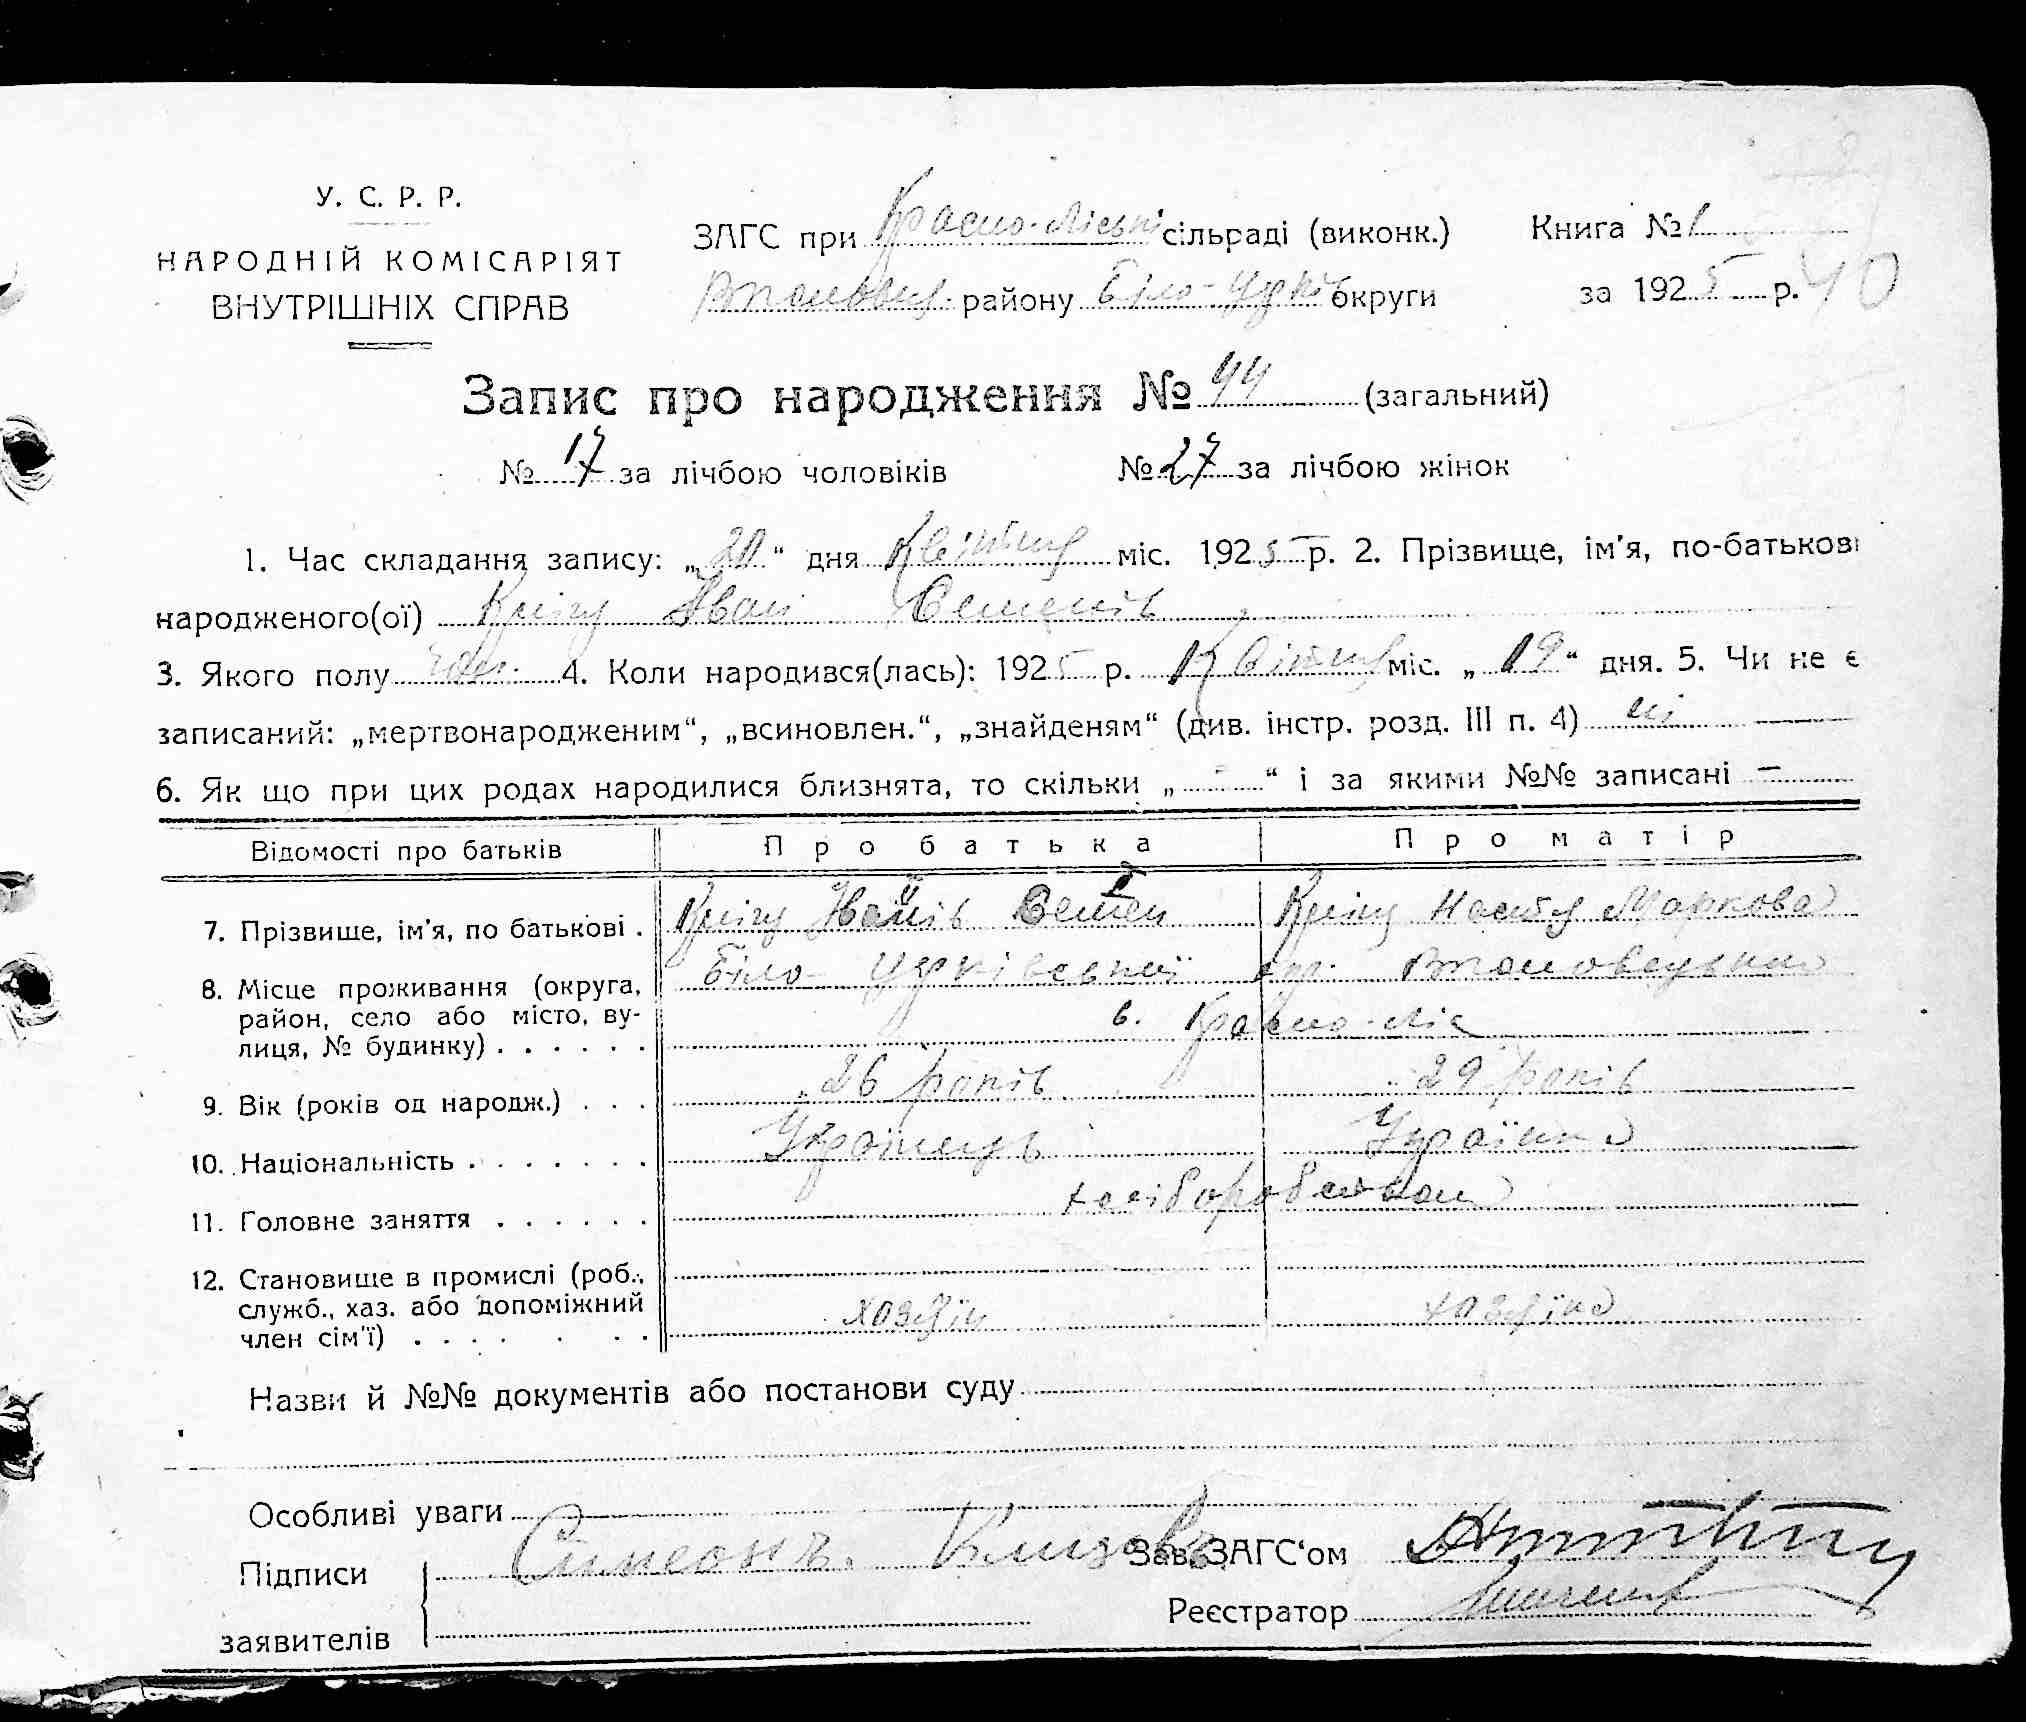 У. С. Р. Р.
НАРОДНІЙ КОМІСАРІЯТ
ВНУТРІШНІХ СПРАВ
ЗАГС при Красно-Ліські сільраді (виконк.)
району Біло-Церків округи
Книга № 1
за 1925 р. 40
Запис про народження № 44 (загальний)
№ 17 за лічбою чоловіків № 27 за лічбою жінок
1. Час складання запису: „20“ дня Квітня міс. 1925 р. 2. Прізвище, ім'я, по-батькові
народженого(ої) Іван Семенів
3. Якого полу чол. 4. Коли народився(лась): 1925 р. Квітня міс. „19“ дня. 5. Чи не є
записаний: „мертвонародженим“, „всиновлен.“, „знайденям“ (див. інстр. розд. III п. 4) ні
6. Як що при цих родах народилися близнята, то скільки „-“ і за якими №№ записані —
Відомості про батьків Про батька Про матір
7. Прізвище, ім'я, по батькові . Семен Настя Маркова
8. Місце проживання (округа, район, село або місто, вулиця, № будинку) . . . . . . Біло-Церківської окр.
с. Красно-Ліс
9. Вік (років од народж.) . . . 26 років 29 років
10. Національність . . . . . . . Українець Українка
11. Головне заняття . . . . . . хліборобство
12. Становище в промислі (роб., служб., хаз. або допоміжний член сім'ї) . . . . . . . хазяїн хазяїна
Назви й №№ документів або постанови суду
Особливі уваги
Підписи
заявителів
Симеонъ
Зав. ЗАГС'ом
Реєстратор